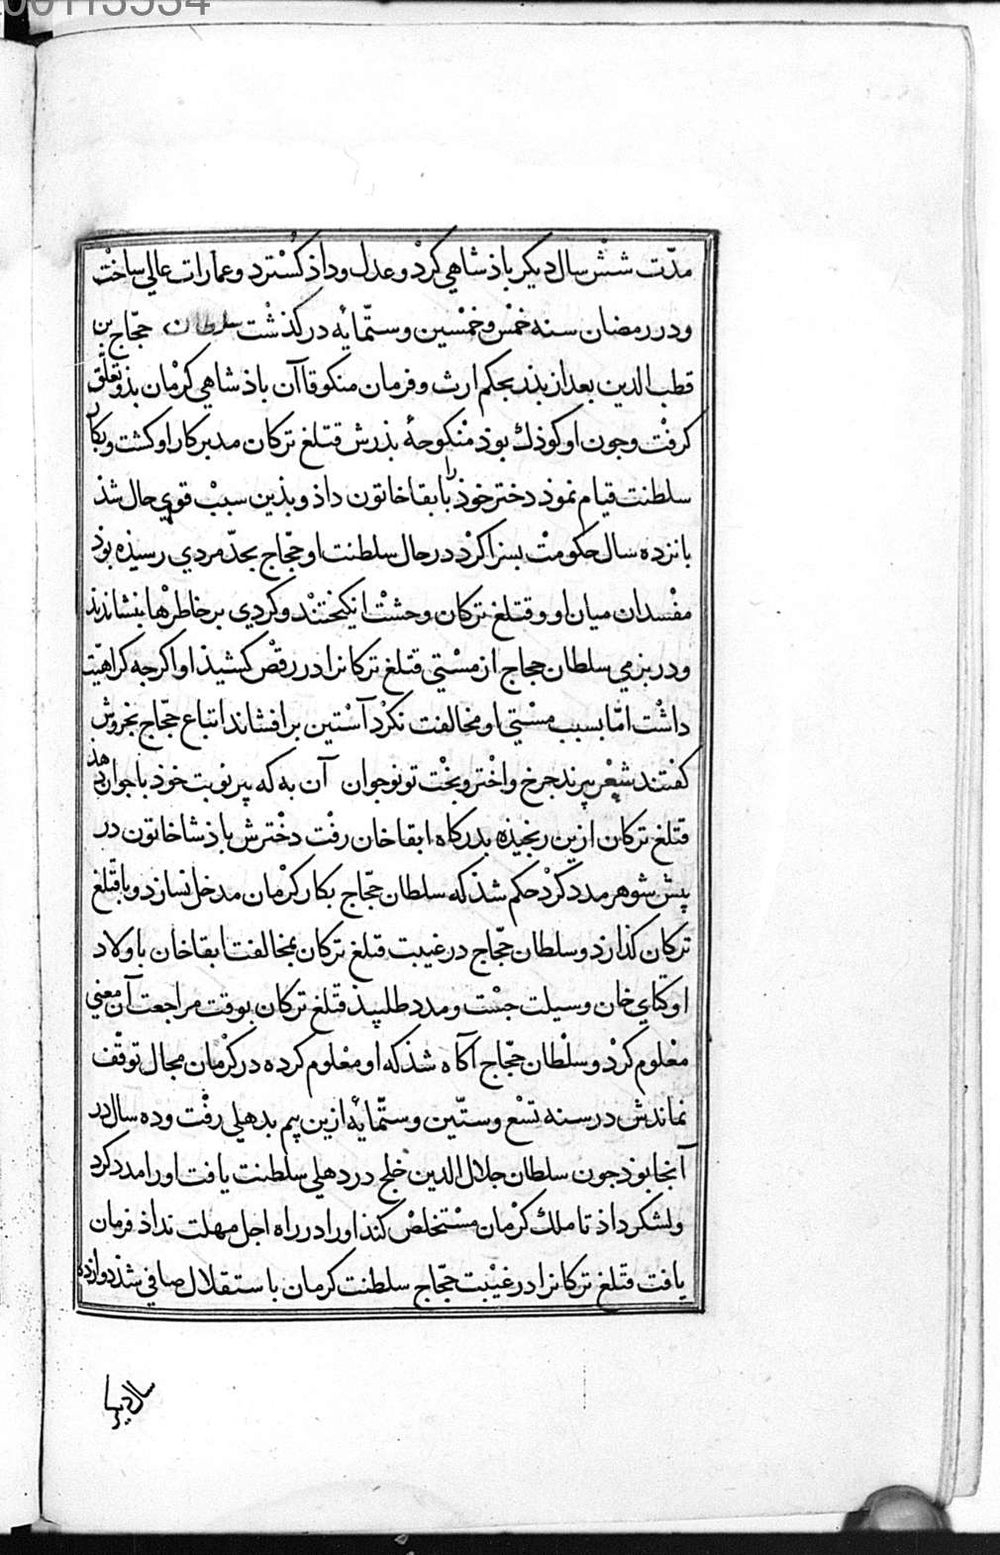 مدّت شش سال ديكر باذشاهي كرد و عدل و داذ كسترد و عمارات عالي ساخت
و در رمضان سنه خمس و خمسين و ستّمايه در كذشت سلطان حجّاج بن
قطب الدين بعد از بذر بحكم ارث و فرمان منكوقاآن باذشاهي كرمان بذو تعلّق
كرفت و جون او كوذك بوذ منكوحهٔ بذرش قتلغ تركان مدبر كار او كشت و بكار
سلطنت قيام نموذ دختر خوذ را بابقا خاتون داذ و بذين سبب قوي حال شذ
بانزده سال حكومت بسزا كرد در حال سلطنت او حجّاج بحدّ مردي رسيذه بوذ
مفسدان ميان او و قتلغ تركان وحشت انكيختند و كردي بر خاطرها بنشاندند
و در بزمي سلطان حجاج از مستي قتلغ تركانرا در رقص كشيذ او اكرجه كراهيت
داشت امّا بسبب مستي او مخالفت نكرد آستين بر افشاند اتباع حجّاج بخروش
كفتند شعر پيرند جرخ و اختر و بخت تو نوجوان آن به كه پير نوبت خوذ با جوان دهذ
قتلغ تركان ازين رنجيذه بدركاه ابقاخان رفت دخترش باذشاخاتون در
پيش شوهر مدد كرد حكم شذ كه سلطان حجّاج بكار كرمان مدخل نسازد و با قتلغ
تركان كذارد و سلطان حجّاج در غيبت قتلغ تركان بمخالفت ابقاخان باولاد
اوكتاي خان وسيلت جست و مدد طلبيذ قتلغ تركان بوقت مراجعت آن معني
معلوم كرد و سلطان حجّاج آكاه شذ كه او معلوم كرده در كرمان مجال توقّف
نماندش در سنه تسع و ستّين و ستّمايه ازين بيم بدهلي رفت و ده سال در
آنجا بوذ جون سلطان جلال الدين خلج در دهلي سلطنت يافت او را مدد كرد
و لشكر داذ تا ملك كرمان مستخلص كند او را در راه اجل مهلت نداذ فرمان
يافت قتلغ تركانرا در غيبت حجّاج سلطنت كرمان باستقلال صافي شذ دوازده
سال ديكر